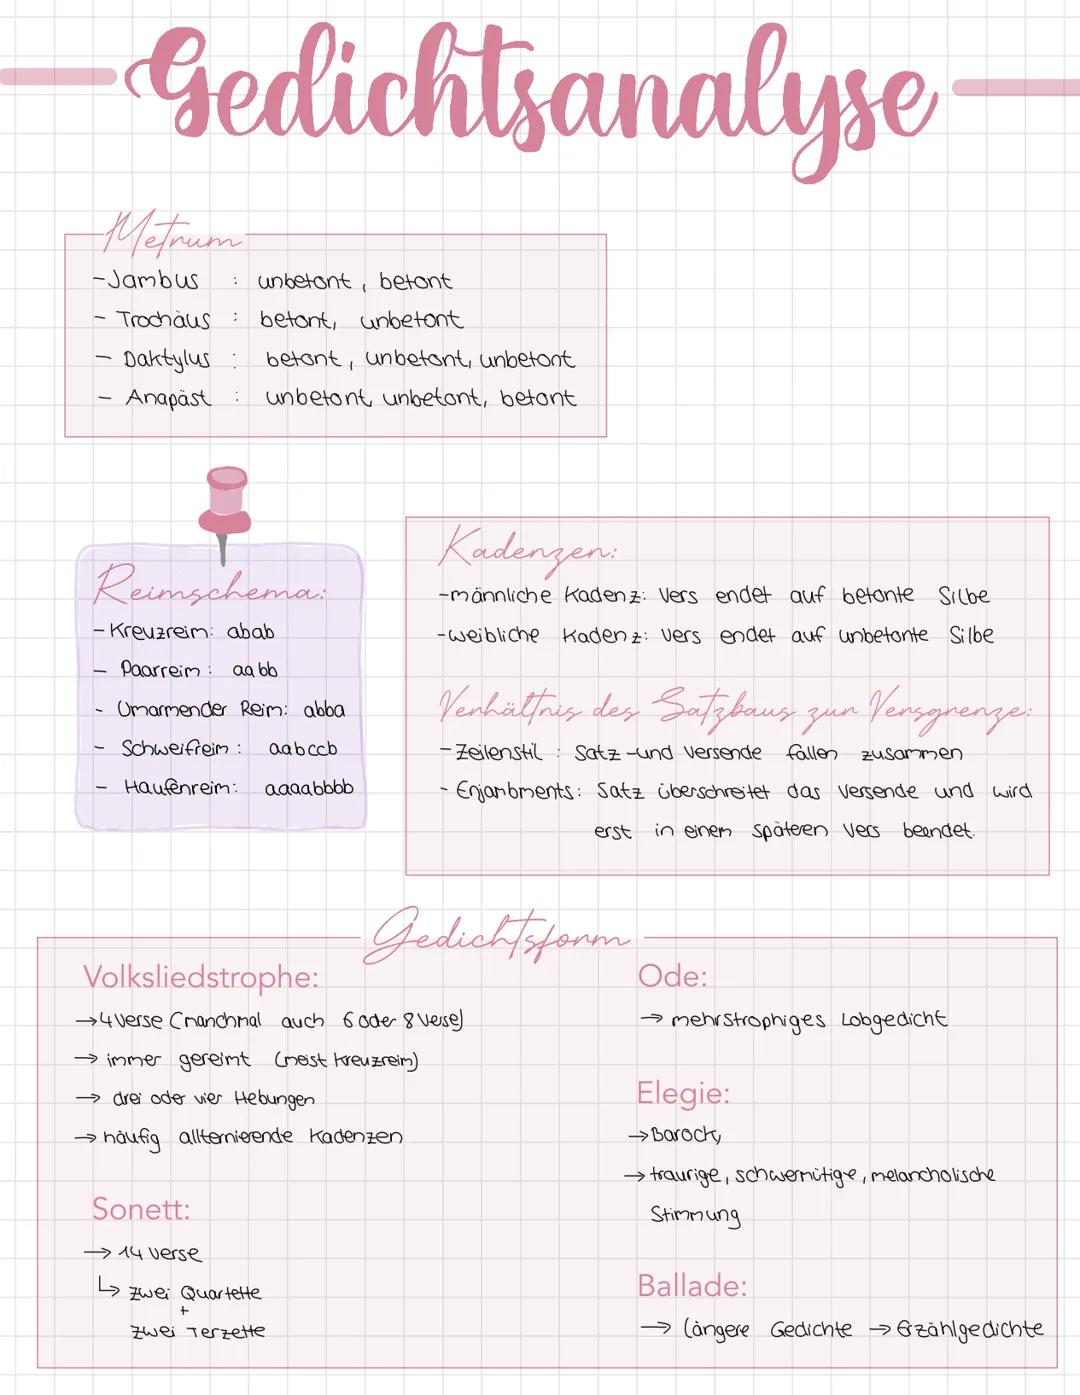 Gedichtsanalyse
Metrum
-Jambus : unbetont, betont
- Trochäus : betont, unbetont
- Daktylus : betont, unbetont, unbetont
- Anapäst : unbetont, unbetont, betont
Reimschema:
-Kreuzreim: abab
- Paarreim: aabb
- Umarmender Reim: abba
- Schweifreim: aabccb
- Haufenreim: aaaabbbb
Kadenzen:
-männliche Kadenz: Vers endet auf betonte Silbe
-weibliche Kadenz: Vers endet auf unbetonte Silbe
Verhältnis des Satzbaus zur Versgrenze:
-Zeilenstil : Satz-und Versende fallen zusammen
- Enjanbments: Satz überschreitet das Versende und wird
erst in einem späteren Vers beendet.
Gedichtsform
Volksliedstrophe:
→4 Verse (manchmal auch 6 oder 8 Verse)
→ immer gereimt (meist Kreuzreim)
→ drei oder vier Hebungen
→ häufig allternierende Kadenzen
Sonett:
→ 14 Verse
↳ zwei Quartette
+
zwei Terzette
Ode:
→ mehrstrophiges Lobgedicht
Elegie:
→Barock,
→ traurige, schwermütige, melancholische
Stimmung
Ballade:
→ längere Gedichte → Erzählgedichte